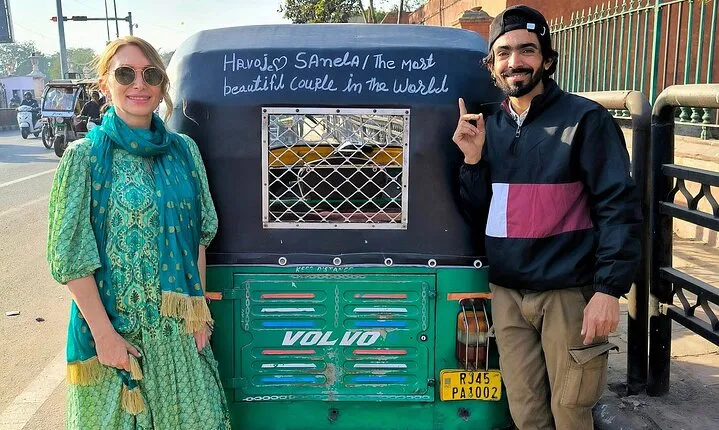 Havojo♡ SANELA / The most
beautiful couple in the World
KEEP DISTANCE
VOLVO
RJ45
PA3002